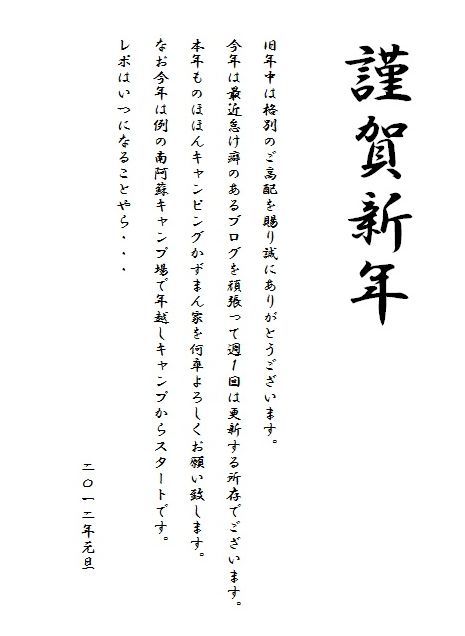 謹賀新年
旧年中は格別のご高配を賜り誠にありがとうございます。
今年は最近怠け癖のあるブログを頑張って週1回は更新する所存でございます。
本年ものほほんキャンピングかずまん家を何卒よろしくお願い致します。
なお今年は例の南阿蘇キャンプ場で年越しキャンプからスタートです。
レポはいつになることやら・・・
二〇一二年元旦